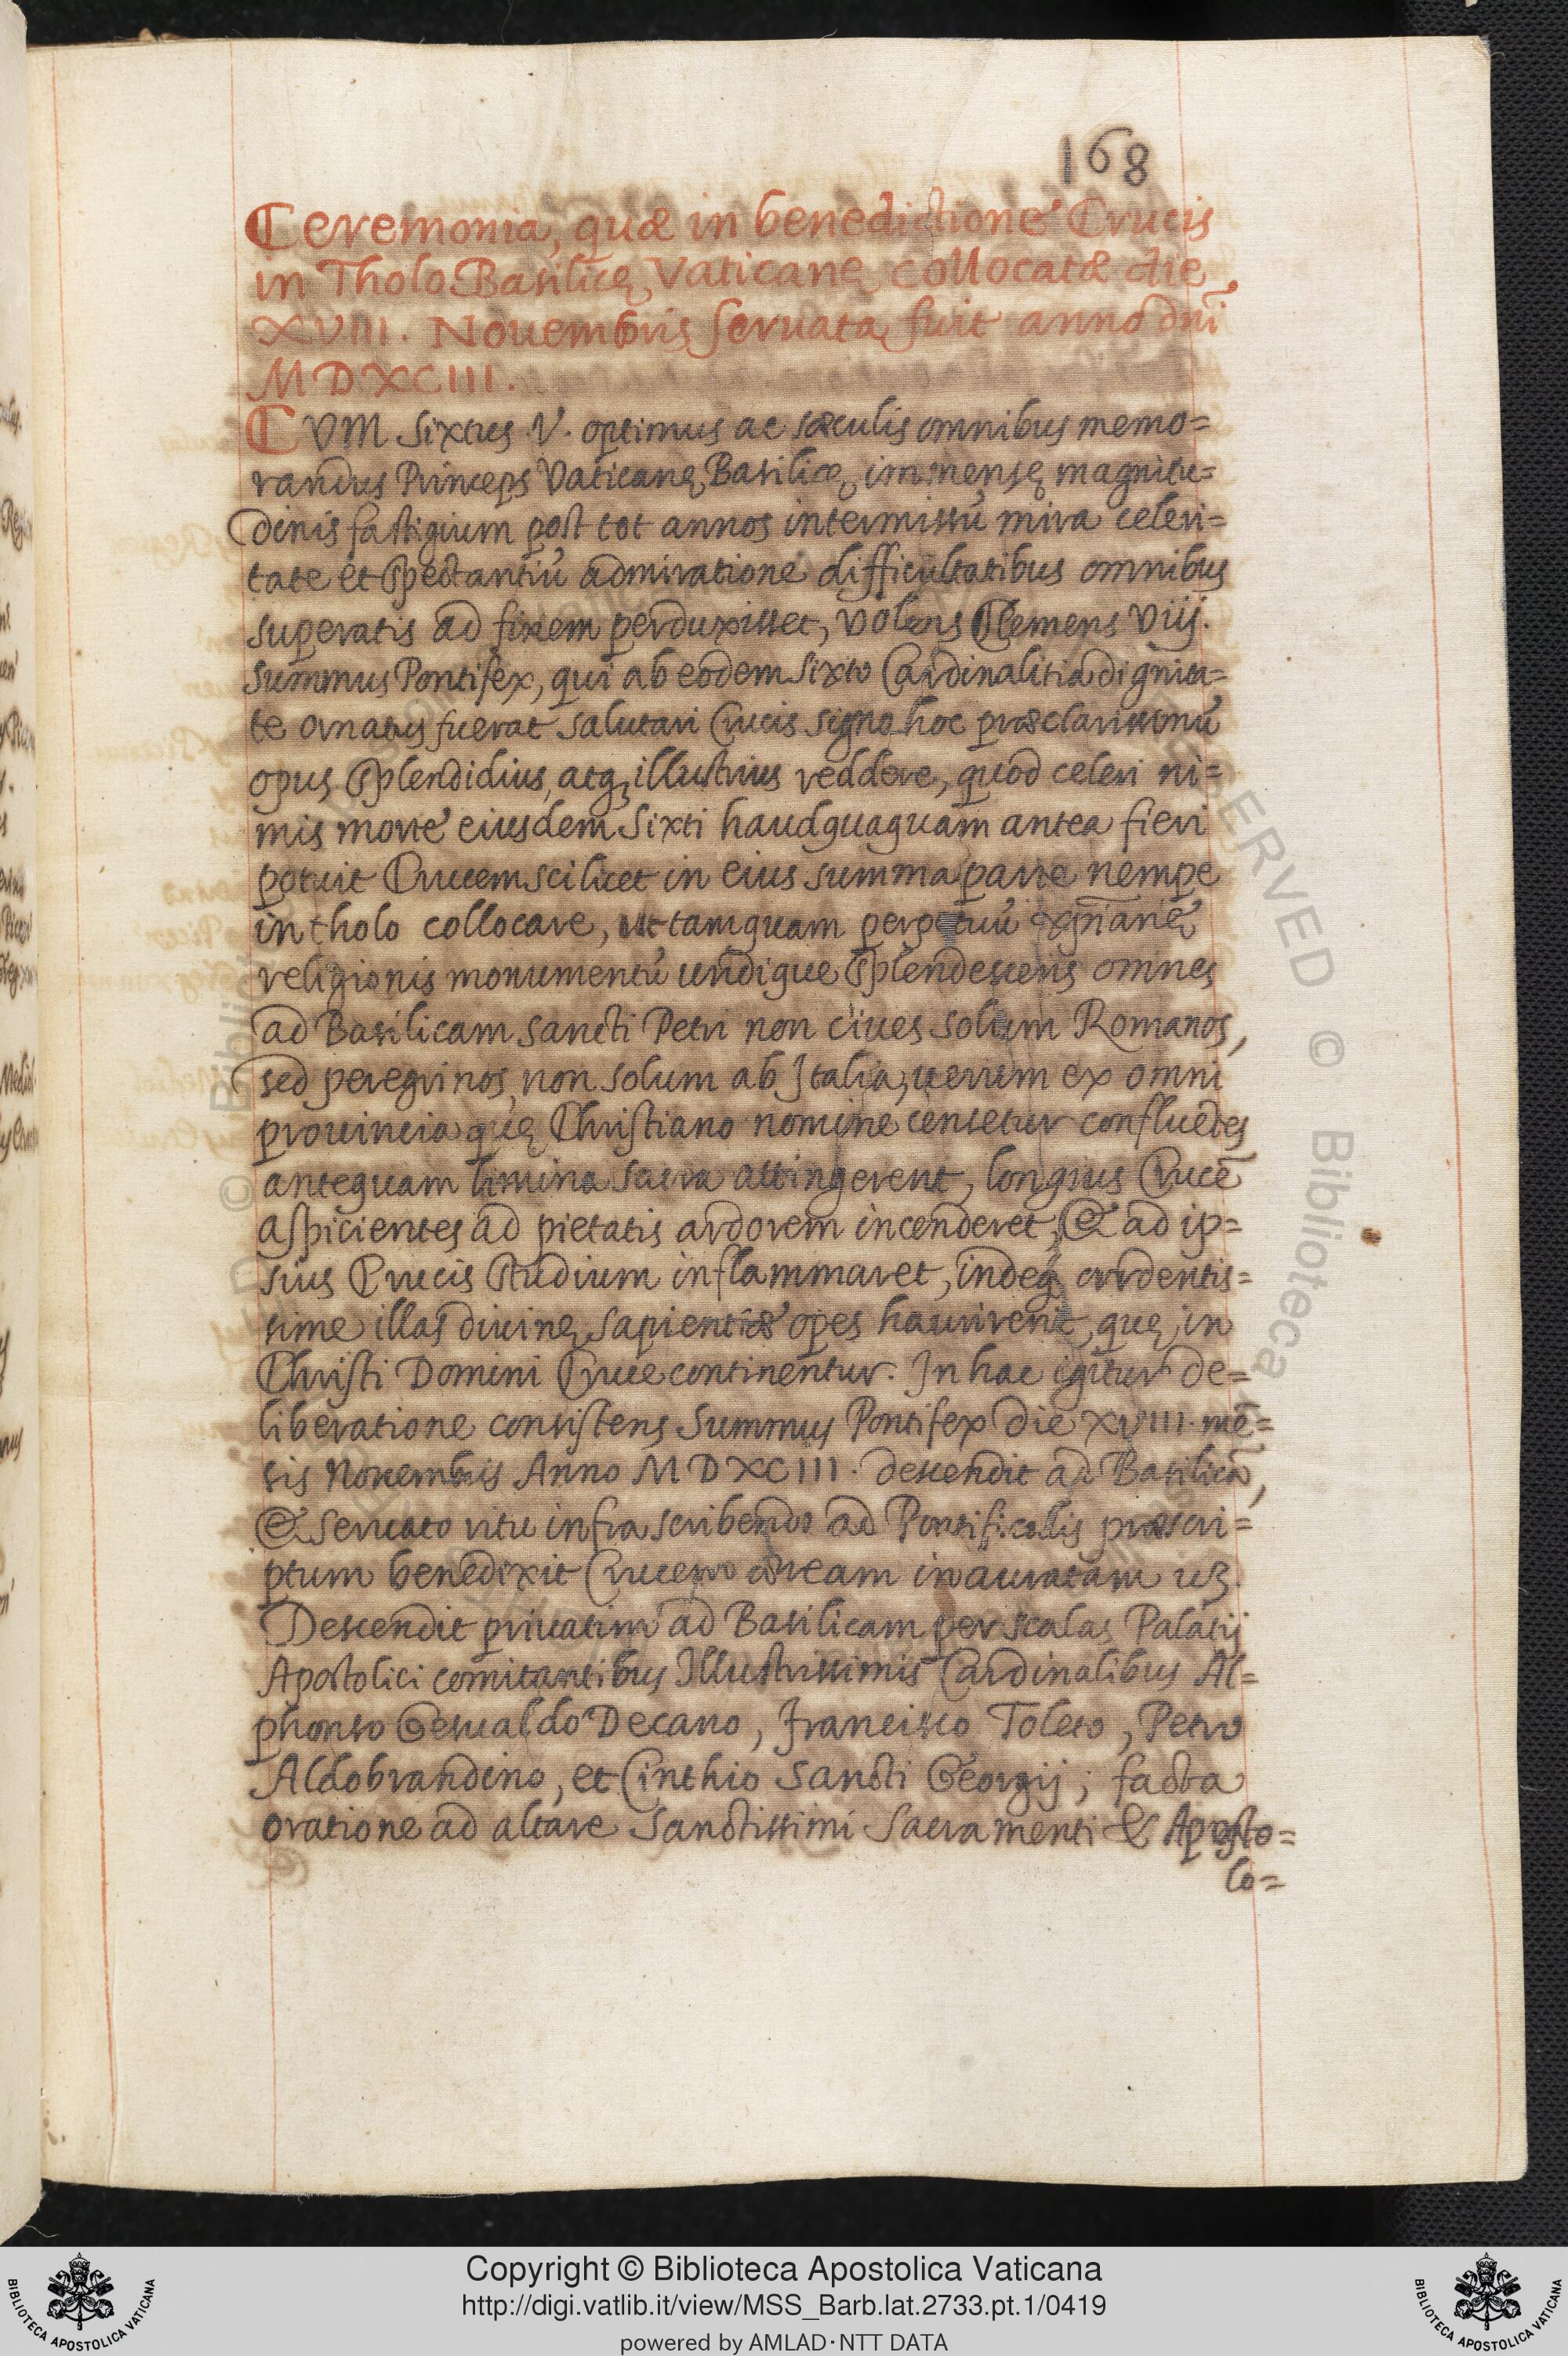 168
Ceremonia, quæ in benedictione Crucis
in Tholo Basilicę Vaticanę collocatæ die
XVIII. Nouembris seruata fuit anno dñi
MDXCIII.
CVM Sixtus V. optimus ac sæculis omnibus memo=
randus Princeps Vaticanę Basilicæ immensę magnitu=
dinis fastigium post tot annos intermissũ mira celeri=
tate et spectantiũ admiratione difficultatibus omnibus
superatis ad finem perduxisset, volens Clemens Viij.
summus Pontifex, qui ab eodem Sixto Cardinalitia dignita=
te ornatus fuerat salutari Crucis signo hoc præclarissimũ
opus splendidius, atq; illustrius reddere, quod celeri ni=
mis morte eiusdem Sixti haudquaquam antea fieri
potuit Crucem scilicet in eius summa parte nempe
in tholo collocare, ut tamquam perpetuũ xp̃ianę
religionis monumentũ undique splendescens omnes
ad Basilicam sancti Petri non ciues solum Romanos,
sed peregrinos, non solum ab Italia, uerum ex omni
prouincia quę Christiano nomine censetur confluẽtes
antequam limina sacra attingerent, longius Crucẽ
aspicientes ad pietatis ardorem incenderet, & ad ip=
sius Crucis studium inflammaret, indeq; ardentis=
sime illas diuinę sapientiæ opes haurirent, quę in
Christi Domini Cruce continentur. In hac igitur de=
liberatione consistens Summus Pontifex die XVIII. mẽ=
sis Nouembris Anno MDXCIII. descendit ad Basilicã,
& seruato ritu infra scribendo ad Pontificalis præscri=
ptum benedixit Crucem æream inauratam uz.
Descendit priuatim ad Basilicam per scalas Palatij
Apostolici comitantibus Illustrissimis Cardinalibus Al=
phonso Gesualdo Decano, Francisco Toleto, Petro
Aldobrandino, et Cinthio Sancti Georgij; facta
oratione ad altare Sanctissimi Sacramenti & Aposto=
lo=
Copyright © Biblioteca Apostolica Vaticana
http://digi.vatlib.it/view/MSS_Barb.lat.2733.pt.1/0419
powered by AMLAD·NTT DATA
BIBLIOTECA APOSTOLICA VATICANA
BIBLIOTECA APOSTOLICA VATICANA